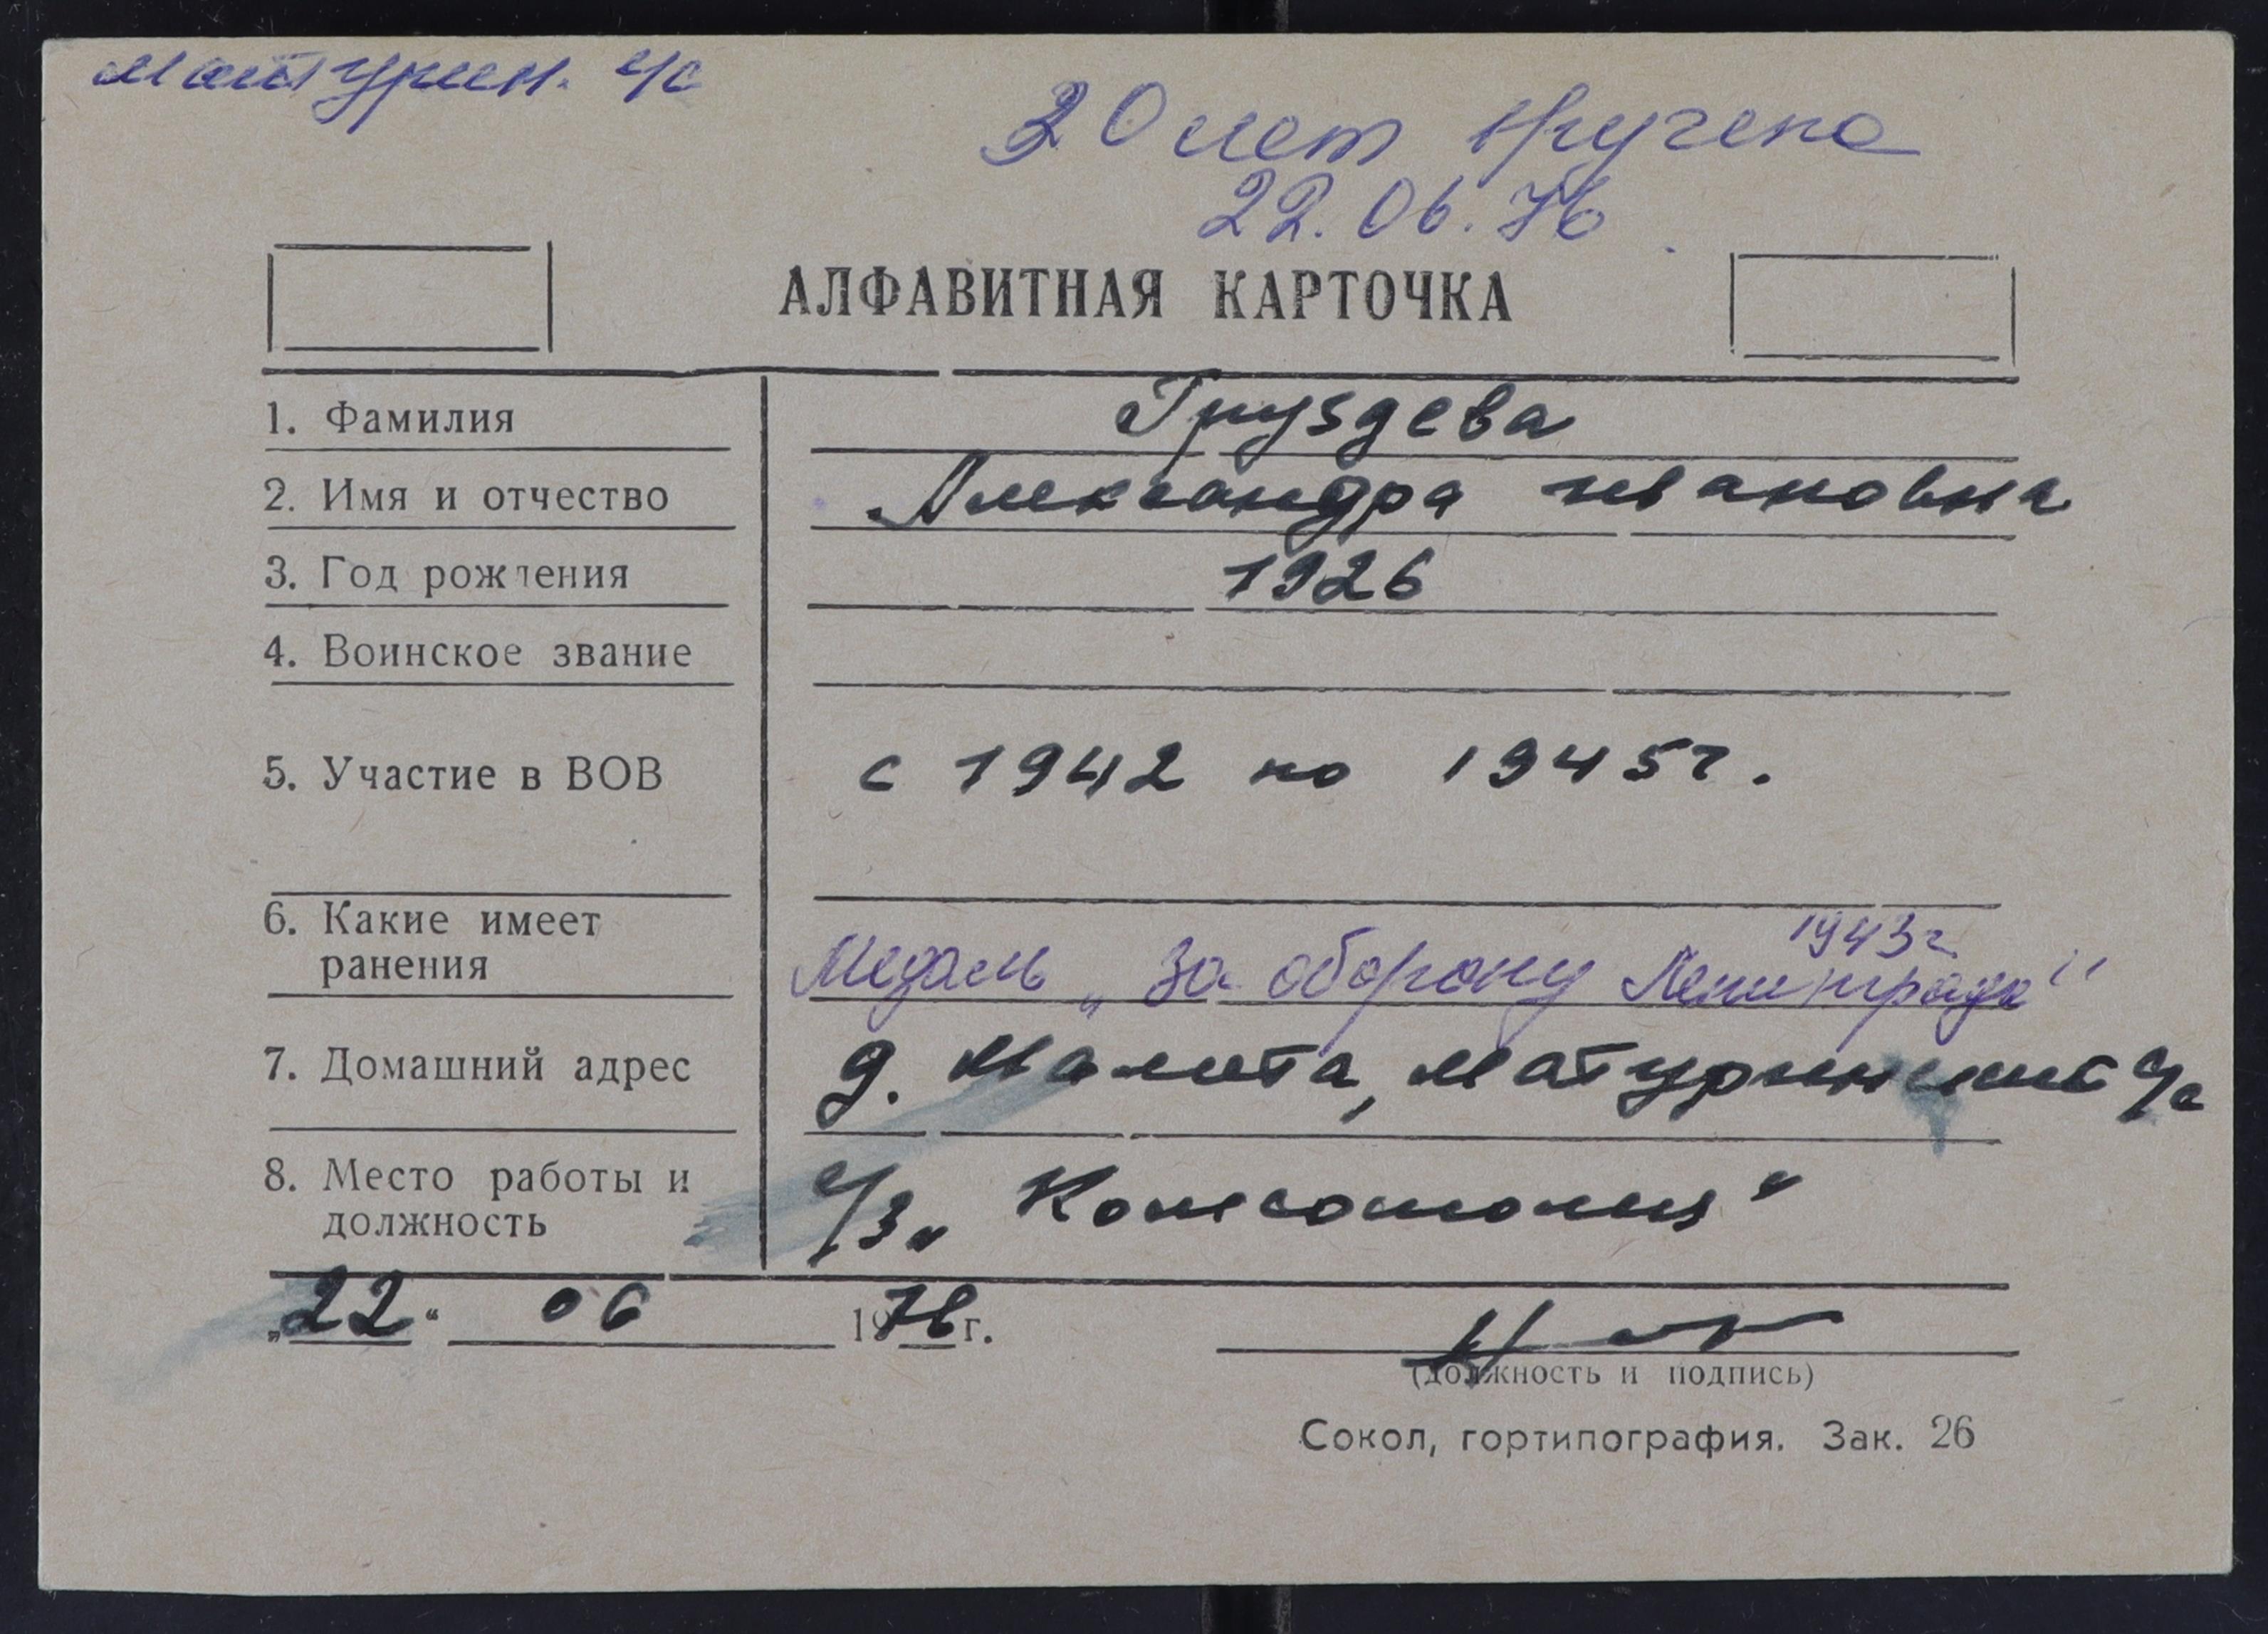 Матурин. с/с
20 лет вручена
22.06.76
АЛФАВИТНАЯ КАРТОЧКА
1. Фамилия Груздева
2. Имя и отчество Александра Ивановна
3. Год рождения 1926
4. Воинское звание
5. Участие в ВОВ с 1942 по 1945 г.
6. Какие имеет
ранения
1943 г
Медаль „За оборону Ленинграда"
7. Домашний адрес д. Малата, Матуринский с/с
8. Место работы и
должность
с/з „Комсомолец"
„22“ 06 1976 г.
(должность и подпись)
Сокол, гортипография. Зак. 26